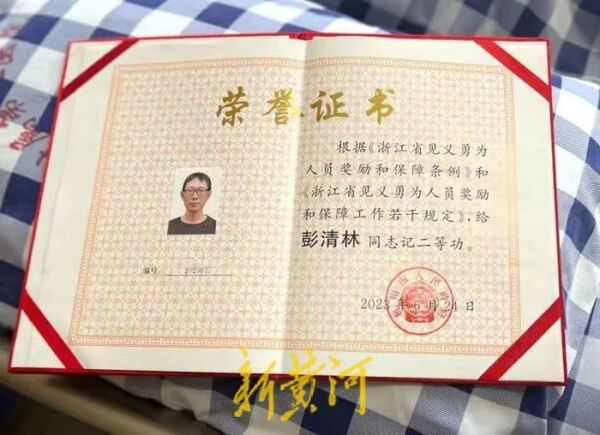 荣誉证书
根据《浙江省见义勇为
人员奖励和保障条例》和
《浙江省见义勇为人员奖励
和保障工作若干规定》，给
彭清林 同志记二等功。
编号
2023年6月24日
新黄河